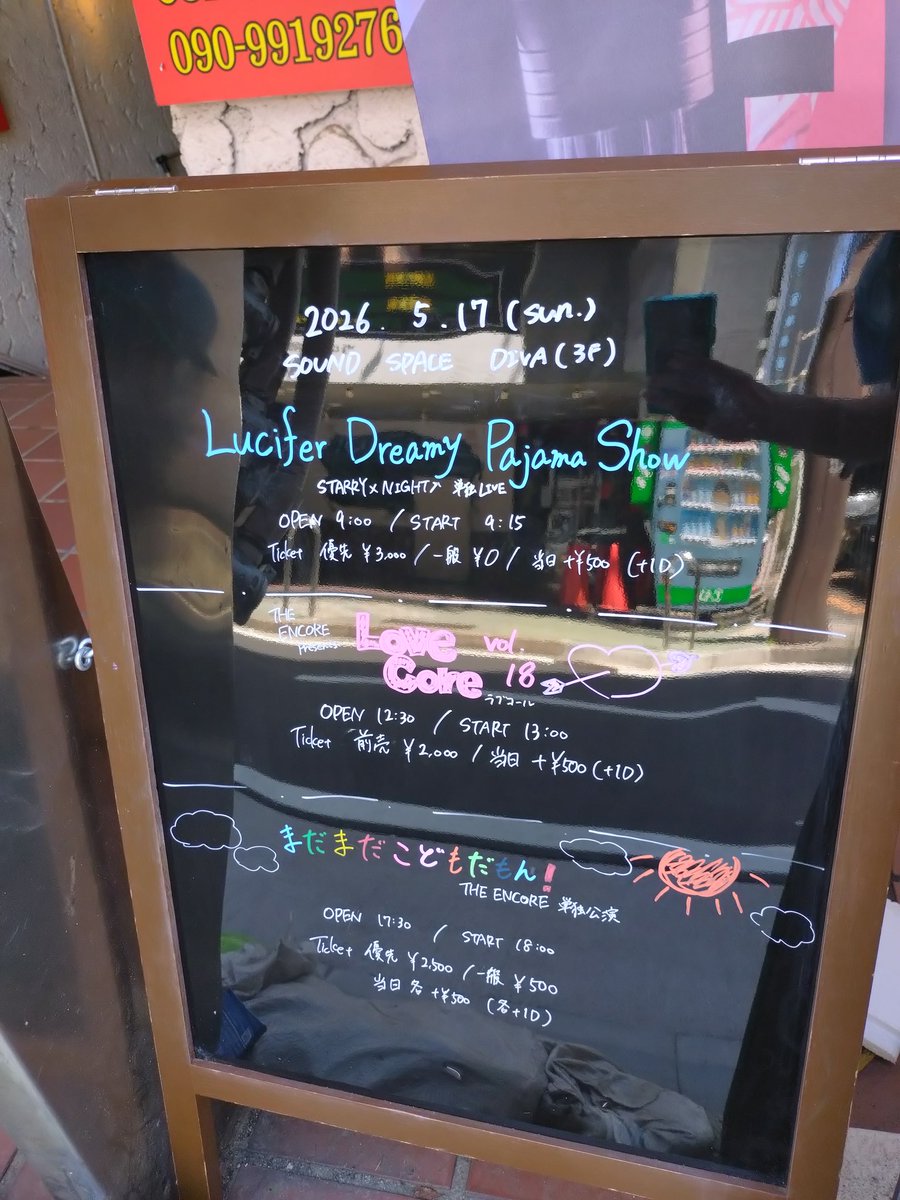 090-9919276
2026. 5. 17 (sun.)
SOUND SPACE DIVA (3F)
Lucifer Dreamy Pajama Show
STARRY×NIGHT♪ 単独LIVE
OPEN 9:00 / START 9:15
Ticket 優先 ¥3,000 / 一般 ¥0 / 当日 +¥500 (+1D)
THE ENCORE presents
Love Core vol. 18
ラブコール
OPEN 12:30 / START 13:00
Ticket 前売 ¥2,000 / 当日 +¥500 (+1D)
まだまだこどもだもん!
THE ENCORE 単独公演
OPEN 17:30 / START 18:00
Ticket 優先 ¥2,500 / 一般 ¥500
当日 各 +¥500 (各+1D)